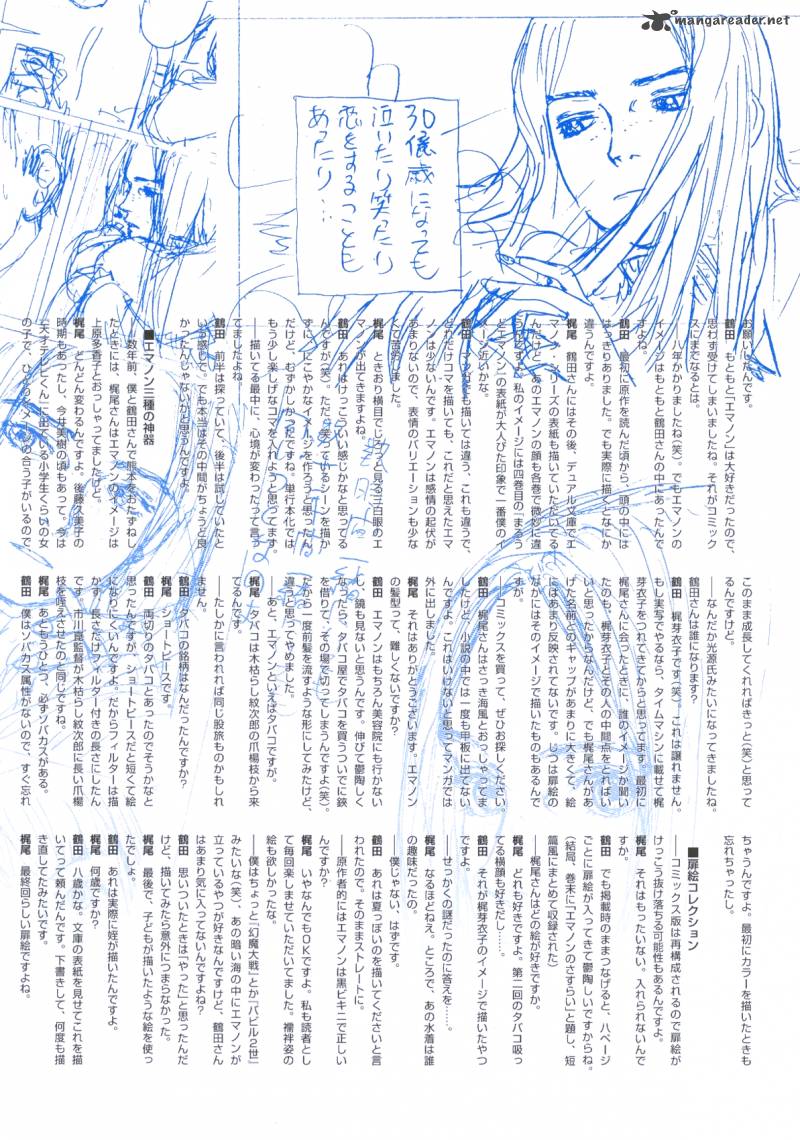 mangareader.net
30億歳になっても
泣いたり笑ったり
恋をすることも
あったり…
お願いしたんです。
鶴田　もともと「エマノン」は大好きだったので、
思わず受けてしまいましたね。それがコミック
スにまでなるとは。
――八年かかりましたね(笑)。でもエマノンの
イメージはもともと鶴田さんの中にあったんで
すよね。
鶴田　最初に原作を読んだ頃から、頭の中には
はっきりありました。でも実際に描くとなにか
違うんですよ。
梶尾　鶴田さんにはその後、デュアル文庫でエ
マノン・シリーズの表紙も描いていただいてる
んだけど、あのエマノンの顔も各巻で微妙に違
うんですよ。私のイメージには四巻目の『まろう
どエマノン』の表紙が大人びた印象で一番僕のイ
メージ近いかな。
鶴田　マンガでも描いては違う、これも違うで、
どれだけコマを描いても、これだと思えたエマ
ノンは少ないんです。エマノンは感情の起伏が
あまりないので、表情のバリエーションも少な
くて苦労しました。
梶尾　ときおり横目でじろっと見る三白眼のエ
マノンが出てきますよね。
鶴田　あれはけっこういい感じかなと思ってる
んですが(笑)。ただ、笑っているシーンを描か
ずに、にこやかなイメージを作ろうと思ったん
だけど、むずかしかったですね。単行本化では
もう少し楽しげなコマを入れようと思ってます。
――描いてる最中に、心境が変わったって言っ
てましたよね。
鶴田　前半は探っていて、後半は試していたと
いう感じで。でも本当はその中間がちょうど良
かったんじゃないかと思うんですよ。
■エマノン三種の神器
――数年前、僕と鶴田さんで熊本をおたずねし
たときには、梶尾さんはエマノンのイメージは
上原多香子とおっしゃってましたけど。
梶尾　どんどん変わるんですよ。後藤久美子の
時期もあったし、今井美樹の頃もあって。今は
『天才テレビくん』に出ている小学生くらいの女
の子で、ひとりイメージの合う子がいるので、
このまま成長してくれればきっと(笑)と思って
るんですけど。
――なんだか光源氏みたいになってきましたね。
鶴田さんは誰になります?
鶴田　梶芽衣子です(笑)。これは譲れません。
もし実写でやるなら、タイムマシンに載せて梶
芽衣子をつれてきてからと思ってます。最初に
梶尾さんに会ったときに、誰のイメージか聞い
たのも、梶芽衣子とその人の中間点をとればい
いと思ったからなんだけど、でも梶尾さんがあ
げた名前とのギャップがあまりに大きくて、絵
にはあまり反映されてないです。じつは扉絵の
なかにはそのイメージで描いたものもあるんで
すが。
――コミックスを買って、ぜひお探しください。
鶴田　梶尾さんはさっき海風とおっしゃってま
したけど、小説の中では一度も甲板に出てない
んですよ。これはいけないと思ってマンガでは
外に出しました。
梶尾　それはありがとうございます。エマノン
の髪型って、難しくないですか?
鶴田　エマノンはもちろん美容院にも行かない
し、鏡も見ないと思うんです。伸びて鬱陶しく
なったら、タバコ屋でタバコを買うついでに鋏
を借りて、その場で切ってしまうんですよ(笑)。
だから一度前髪を流すような形にしてみたけど、
違うと思ってやめました。
――あと、エマノンといえばタバコですが。
梶尾　タバコは木枯らし紋次郎の爪楊枝から来
てるんです。
――たしかに言われれば同じ股旅ものかもしれ
ません。
鶴田　タバコの銘柄はなんだったんですか?
梶尾　ショートピースです。
鶴田　両切りのタバコとあったのでそうかなと
思ったんですが、ショートピースだと短くて絵
になりにくいんですよ。だからフィルターは描
かず、長さだけフィルター付きの長さにしたん
です。市川崑監督が木枯らし紋次郎に長い爪楊
枝を咥えさせたのと同じですね。
梶尾　あともうひとつ、必ずソバカスがある。
鶴田　僕はソバカス属性がないので、すぐ忘れ
ちゃうんですよ。最初にカラーを描いたときも
忘れちゃったし。
■扉絵コレクション
――コミックス版は再構成されるので扉絵が
けっこう抜け落ちる可能性もあるんですよ。
梶尾　それはもったいない。入れられないんで
すか。
鶴田　でも掲載時のままつなげると、八ページ
ごとに扉絵が入ってきて鬱陶しいですからね。
(結局、巻末に「エマノンのさすらい」と題し、短
篇風にまとめて収録された)
――梶尾さんはどの絵が好きですか。
梶尾　どれも好きですよ。第二回のタバコ吸っ
てる横顔も好きだし……。
鶴田　それが梶芽衣子のイメージで描いたやつ
ですよ。
――せっかくの謎だったのに答えを……。
梶尾　なるほどねえ。ところで、あの水着は誰
の趣味だったの。
――僕じゃない、はずです。
鶴田　あれは夏っぽいのを描いてくださいと言
われたので、そのままストレートに。
――原作者的にはエマノンは黒ビキニで正しい
んですか?
梶尾　いやなんでもOKですよ。私も読者とし
て毎回楽しませていただいてました。襦袢姿の
絵も欲しかったな。
――僕はちょっと『幻魔大戦』とか『バビル2世』
みたいな(笑)、あの暗い海の中にエマノンが
立っているやつが好きなんですけど、鶴田さん
はあまり気に入ってないんですよね?
鶴田　思いついたときは「やった」と思ったんだ
けど、描いてみたら意外につまらなかった。
梶尾　最後で、子どもが描いたような絵を使っ
たでしょ。
鶴田　あれは実際に姪が描いたんですよ。
梶尾　何歳ですか?
鶴田　八歳かな。文庫の表紙を見せてこれを描
いてって頼んだんです。下書きして、何度も描
き直してたみたいです。
梶尾　最終回らしい扉絵ですよね。